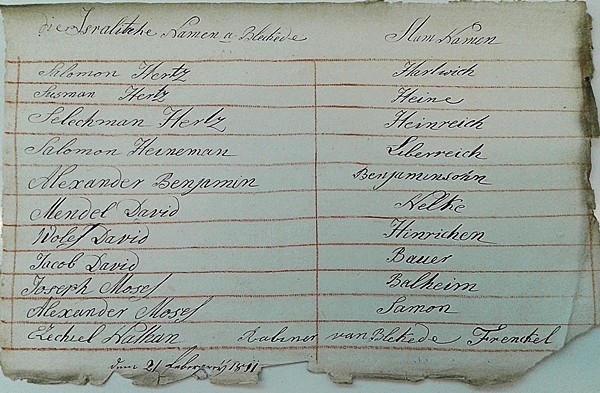 die Isralitche Namen a Blekede Stam Namen
Salomon Hertz Hartwich
Susman Hertz Heine
Selechman Hertz Heinreich
Salomon Heineman Liberreich
Alexander Benjamin Benjaminsohn
Mendel David Nelke
Wolef David Hinrichen
Jacob David Bauer
Joseph Moses Balheim
Alexander Moses Samon
Ezechiel Nathan Rabiner van Blekede Frenckel
dem 21 1811